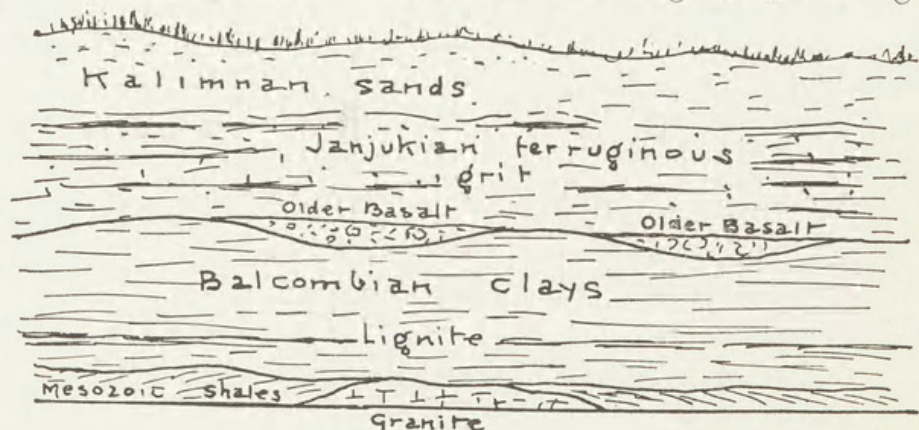 Kalimnan sands
Janjukian ferruginous
grit
Older Basalt
Older Basalt
Balcombian clays
Lignite
Mesozoic Shales
Granite